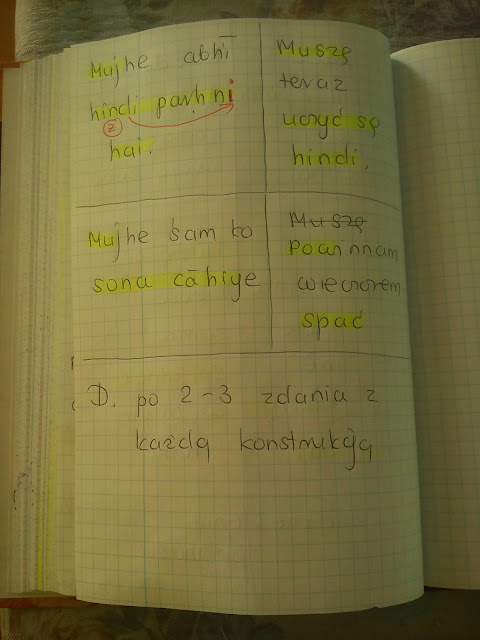 Mujhe abhī
hindi paṛhni
ż
hai.
Muszę
teraz
uczyć sę
hindi.
Mujhe śam ko
sona cāhiye
Muszę
Powinnam
wieczorem
spać
D. po 2-3 zdania z
każdą konstrukcją